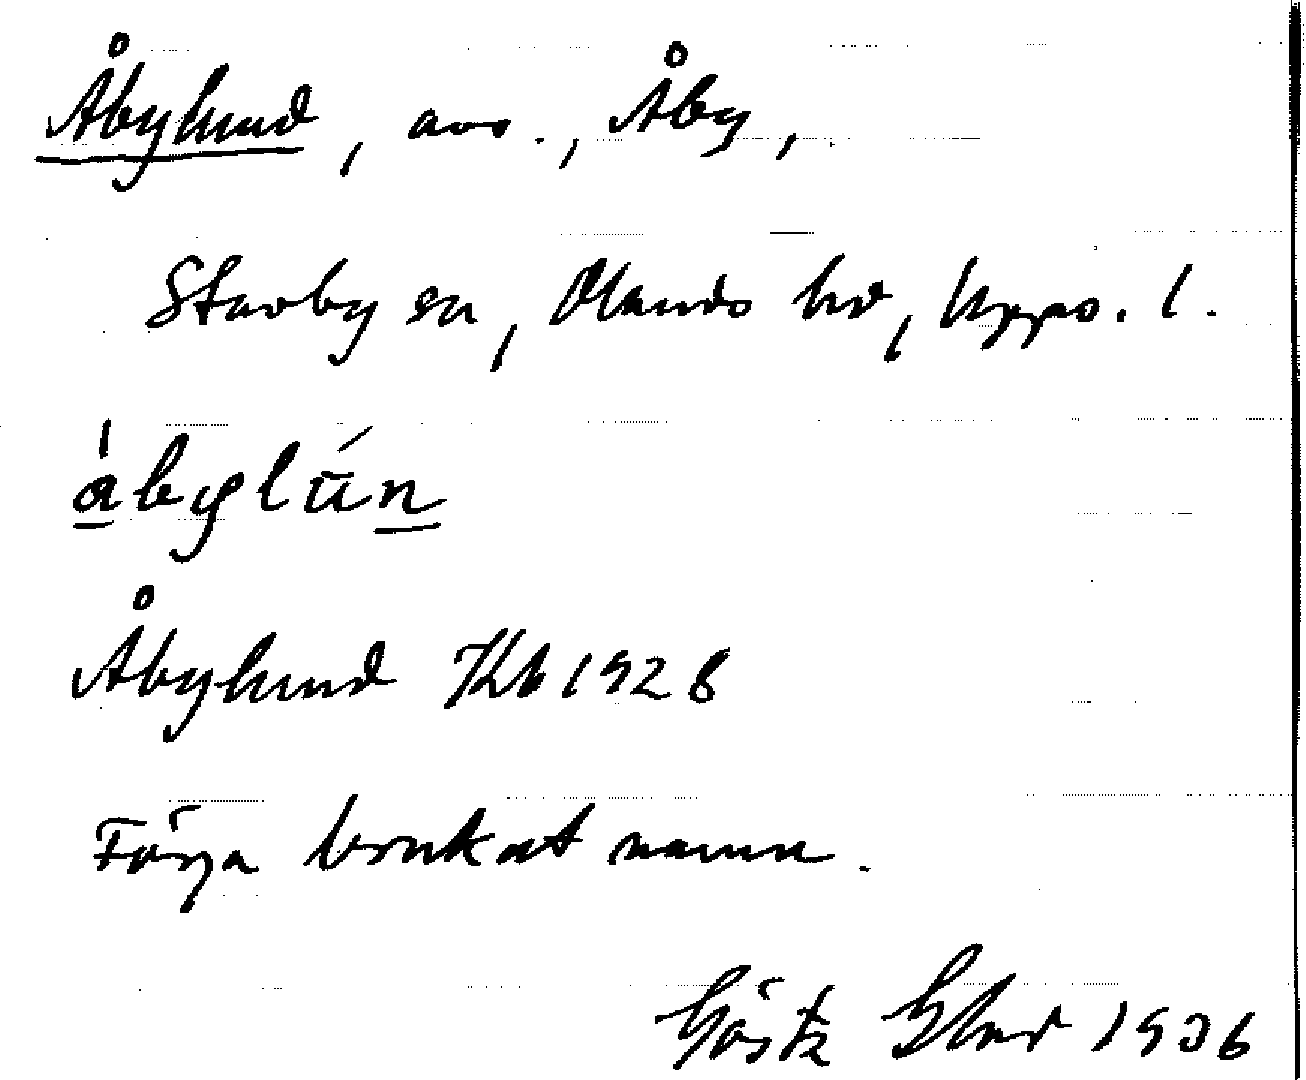 Åbylund, avs., Åby,
Stavby sn, Olands hd, Upps. l.
åbylún
Åbylund Kb 1928
Föga brukat namn.
Gösta 1936